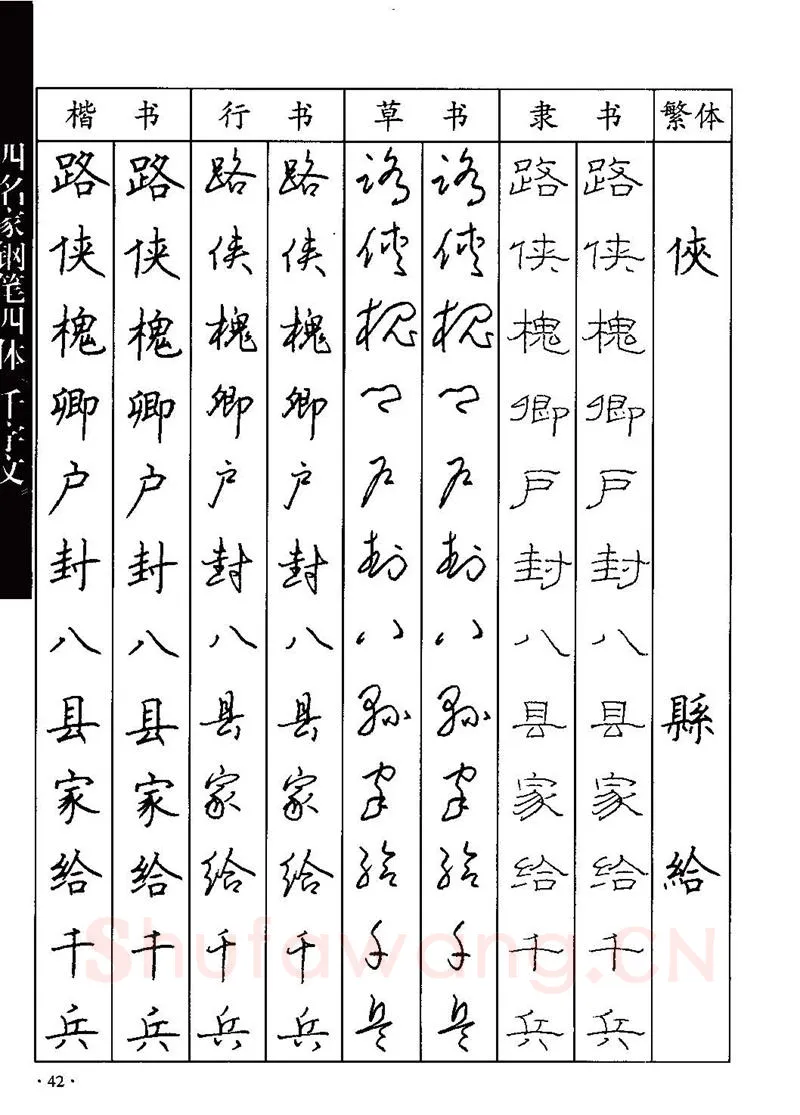 四名家钢笔四体 千字文
楷书 行书 草书 隶书 繁体
路 路 路 路 路 路 路 路
侠 侠 侠 侠 侠 侠 侠 侠 俠
槐 槐 槐 槐 槐 槐 槐 槐
卿 卿 卿 卿 卿 卿 卿 卿
户 户 户 户 户 户 户 户
封 封 封 封 封 封 封 封
八 八 八 八 八 八 八 八
县 县 县 县 县 县 县 县 縣
家 家 家 家 家 家 家 家
给 给 给 给 给 给 给 给 給
千 千 千 千 千 千 千 千
Shufawang.CN
兵 兵 兵 兵 兵 兵 兵 兵
·42·